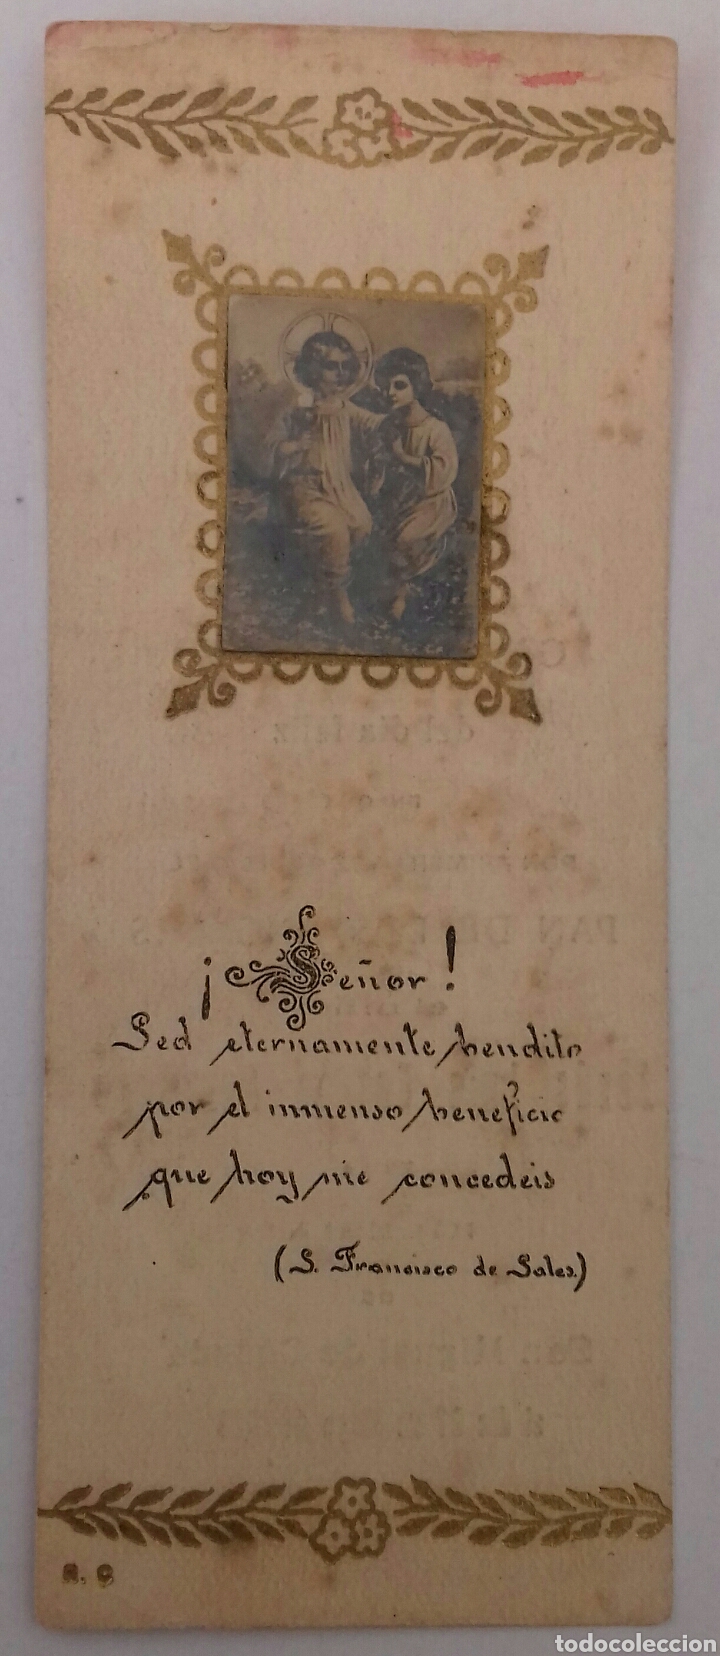 ¡Señor!
Sed eternamente bendito
por el inmenso beneficio
que hoy me concedeis
(S. Francisco de Sales.)
todocoleccion